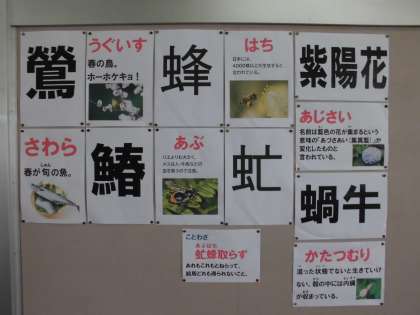 鶯
うぐいす
春の鳥。
ホーホケキョ！
蜂
はち
日本には、
4000種以上が生息すると
言われている。
紫陽花
あじさい
名前は藍色の花が集まるという
意味の「あづさあい（集真藍）」が
変化したものと
言われている。
さわら
しゅん
春が旬の魚。
鰆
あぶ
虻
蝸牛
かたつむり
湿った状態でないと生きていけ
ない。殻の中には内臓
が収まっている。
ことわざ
あぶはち
虻蜂取らず
あれもこれもとねらって、
結局どれも得られないこと。